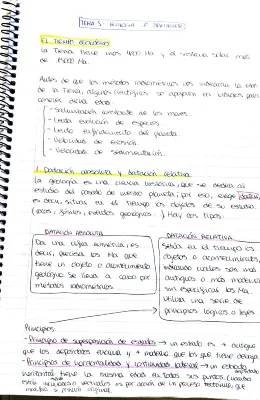 TEMA 5:
EL TIEMPO GEOLÓGICO
La Tierra tiene unos 4600 Ma y el sistema solar más
de 15000 Ma.
Antes de que los métodos radiométricos nos indicaran la edad
de la Tierra, algunos científicos se apoyaron en indicios para
conocer dicha edad
- Salinización constante de los mares
- Lenta evolución de especies
- Lento enfriamiento del planeta
- Velocidades de erosión
- Velocidades de sedimentación.
1. Datación absoluta y datación relativa
La geología es una ciencia histórica, que se dedica al
estudio del pasado de nuestro planeta, por eso, exige datar,
es decir, situar en el tiempo los objetos de su estudio.
(rocas, fósiles, eventos geológicos...) Hay dos tipos:
DATACIÓN ABSOLUTA
Da una cifra numérica, es
decir, precisa los Ma que
tiene un objeto o acontecimiento
geológico. Se lleva a cabo por
métodos radiométricos.
DATACIÓN RELATIVA
Sitúa en el tiempo los
objetos o acontecimientos,
indicando cuáles son más
antiguos o más modernos
sin especificar los Ma.
Utiliza una serie de
principios lógicos o leyes
Principios
- Principio de superposición de estratos → un estrato es + antiguo
que los depositados encima y + moderno que los que tiene debajo
- Principios de horizontalidad y continuidad lateral → un estrato
horizontal tiene la misma edad en todos sus puntos (cuando